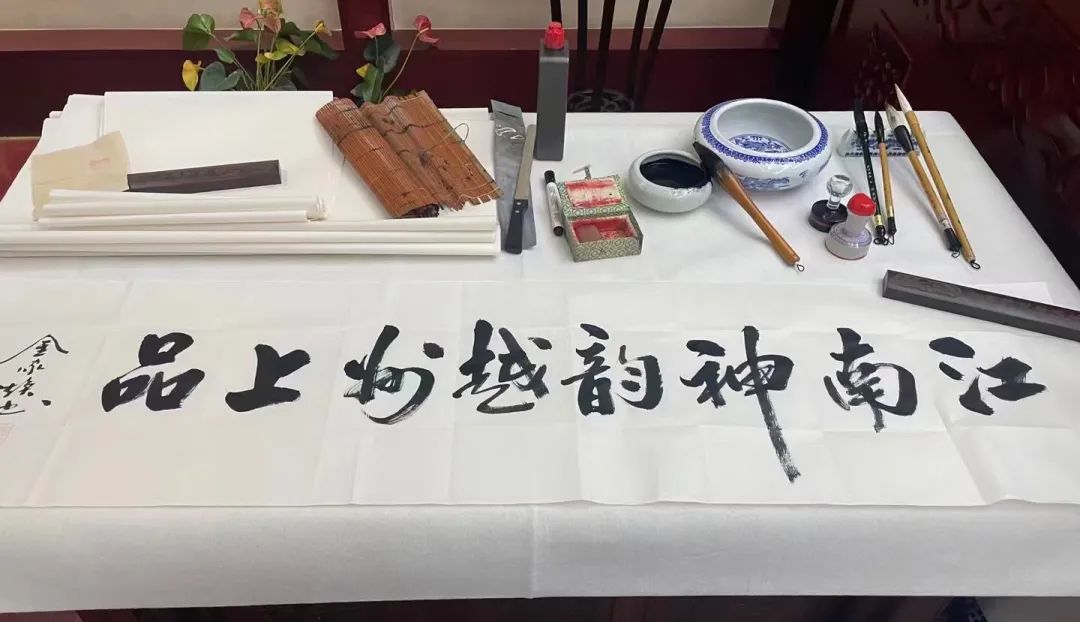 江南神韵越州上品